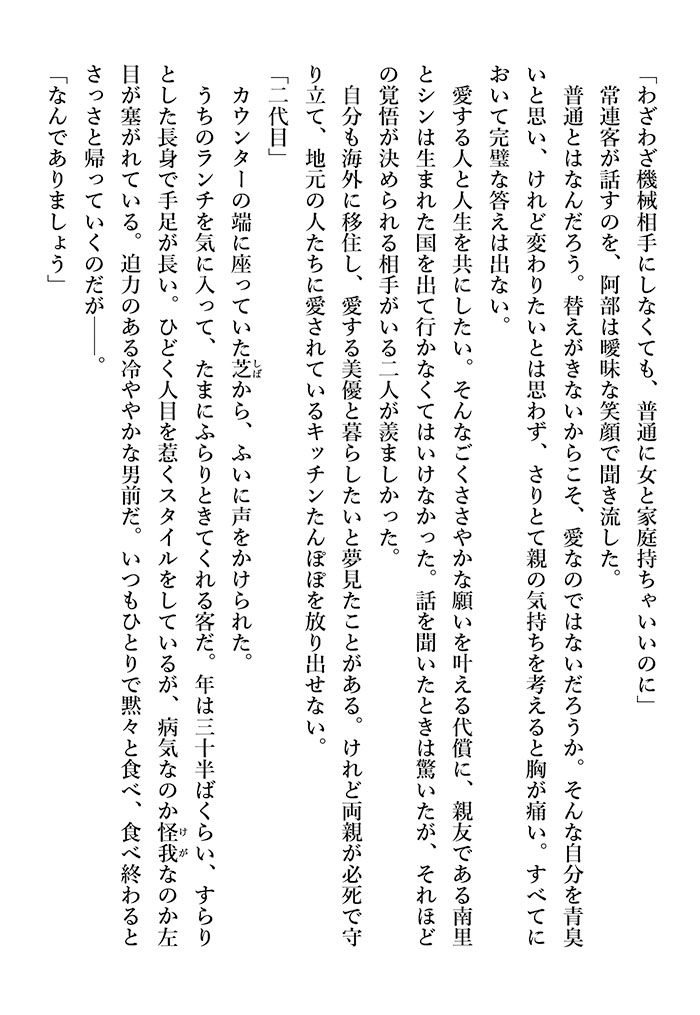 「わざわざ機械相手にしなくても、普通に女と家庭持ちゃいいのに」
常連客が話すのを、阿部は曖昧な笑顔で聞き流した。
普通とはなんだろう。替えがきないからこそ、愛なのではないだろうか。そんな自分を青臭
いと思い、けれど変わりたいとは思わず、さりとて親の気持ちを考えると胸が痛い。すべてに
おいて完璧な答えは出ない。
愛する人と人生を共にしたい。そんなごくささやかな願いを叶える代償に、親友である南里
とシンは生まれた国を出て行かなくてはいけなかった。話を聞いたときは驚いたが、それほど
の覚悟が決められる相手がいる二人が羨ましかった。
自分も海外に移住し、愛する美優と暮らしたいと夢見たことがある。けれど両親が必死で守
り立て、地元の人たちに愛されているキッチンたんぽぽを放り出せない。
「二代目」
カウンターの端に座っていた芝から、ふいに声をかけられた。
うちのランチを気に入って、たまにふらりときてくれる客だ。年は三十半ばくらい、すらり
とした長身で手足が長い。ひどく人目を惹くスタイルをしているが、病気なのか怪我なのか左
目が塞がれている。迫力のある冷ややかな男前だ。いつもひとりで黙々と食べ、食べ終わると
さっさと帰っていくのだが――。
「なんでありましょう」